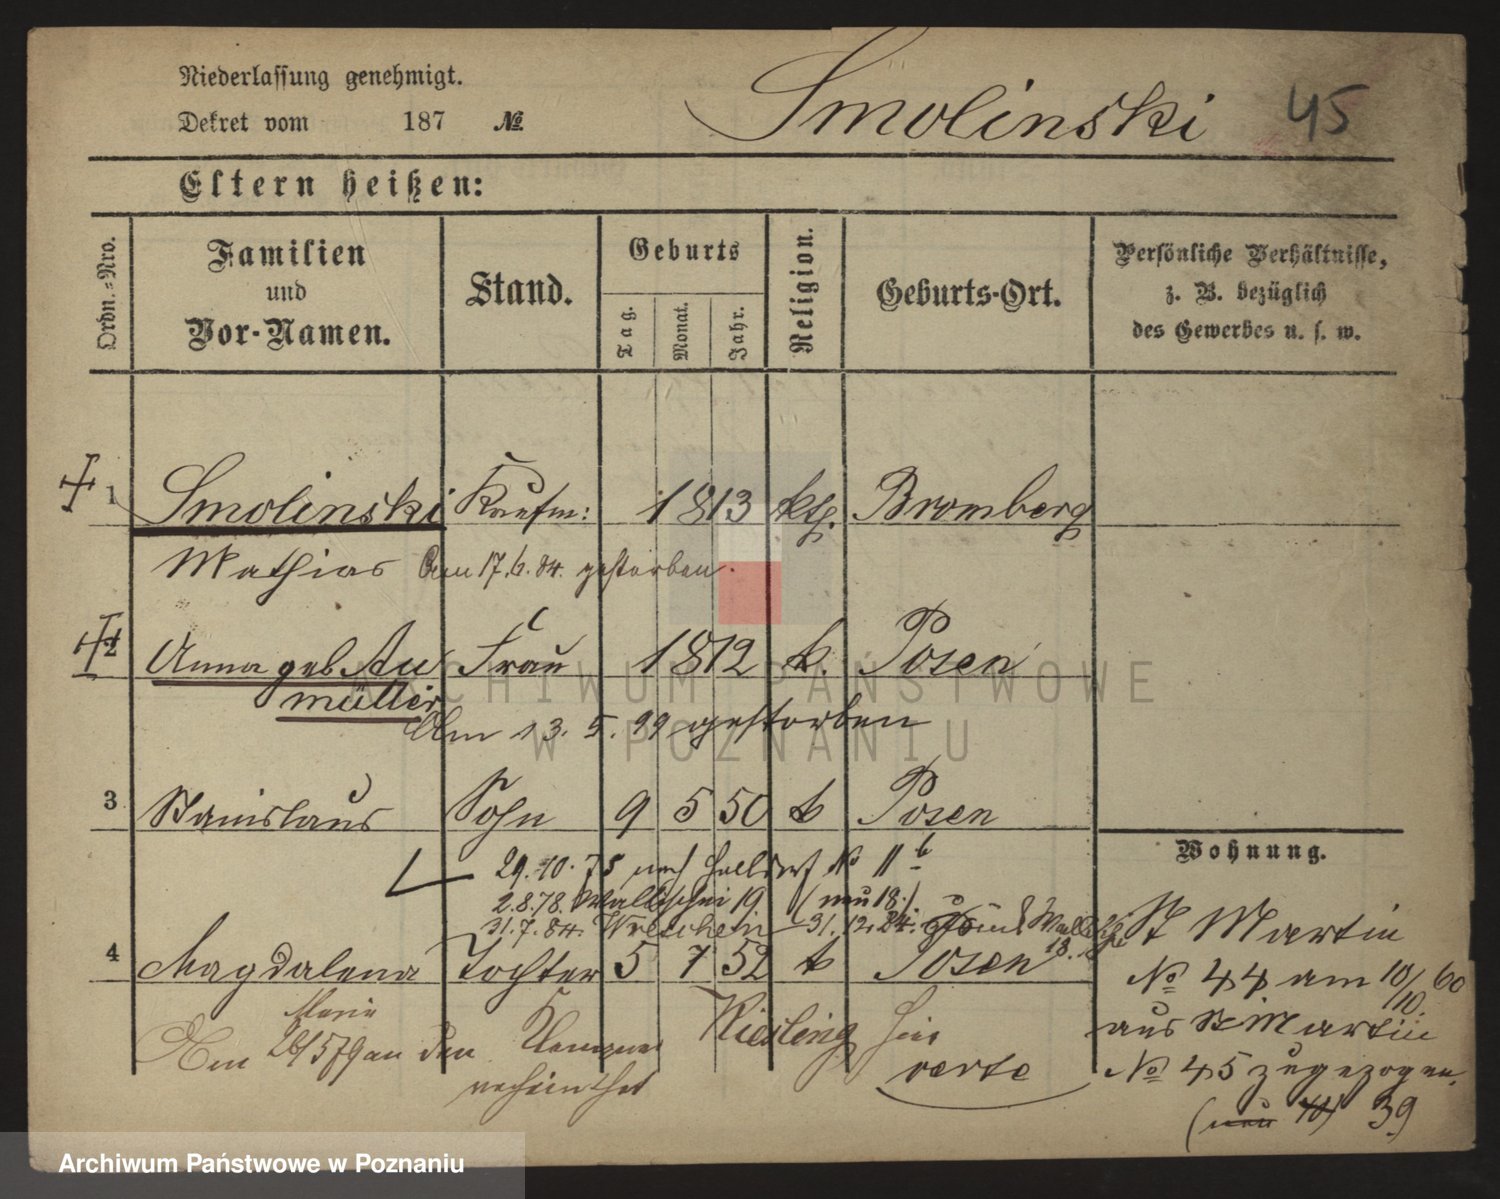 Niederlassung genehmigt.
Dekret vom 187 №
Smolinski 45
Eltern heißen:
Ordn.=Nro.
Familien
und
Vor-Namen.
Stand.
Geburts
Tag.
Monat.
Jahr.
Religion.
Geburts-Ort.
Persönliche Verhältnisse,
z. B. bezüglich
des Gewerbes u. s. w.
1 Smolinski Kaufm: 1813 kth. Bromberg
Mathias Am 17.6.84. gestorben.
2 Anna geb. Au Frau 1812 k. Posen
müller
Am 13. 5. 99 gestorben
3 Stanislaus Sohn 9 5 50 k Posen
29.10.75 nach Halldorf № 11 b
2.8.78. Wallischei 19 (neu 18.)
31.7.84. Wreschen 31.12.84. zurück Wallischei
18.
4 Magdalena Tochter 5 7 52 k Posen
Maria
Am 26/5 79 an den Riesling hier
verheirathet
verte
Wohnung.
St Martin
№ 44 am 10/10. 60
aus St Martin
№ 45 zugezogen.
(neu 40) 39
ARCHIWUM PAŃSTWOWE
W POZNANIU
Archiwum Państwowe w Poznaniu